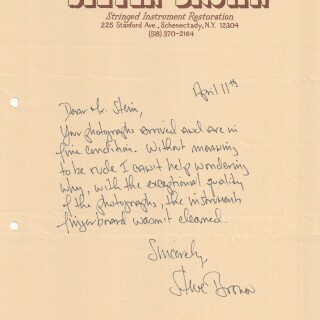 STEVEN BROWN
Stringed Instrument Restoration
225 Stanford Ave., Schenectady, N.Y. 12304
(518) 370-2164
April 11th
Dear Mr. Stein,
Your photographs arrived and are in
fine condition. Without meaning
to be rude I can't help wondering
why, with the exceptional quality
of the photographs, the instruments
fingerboard wasn't cleaned.
Sincerely,
Steve Brown